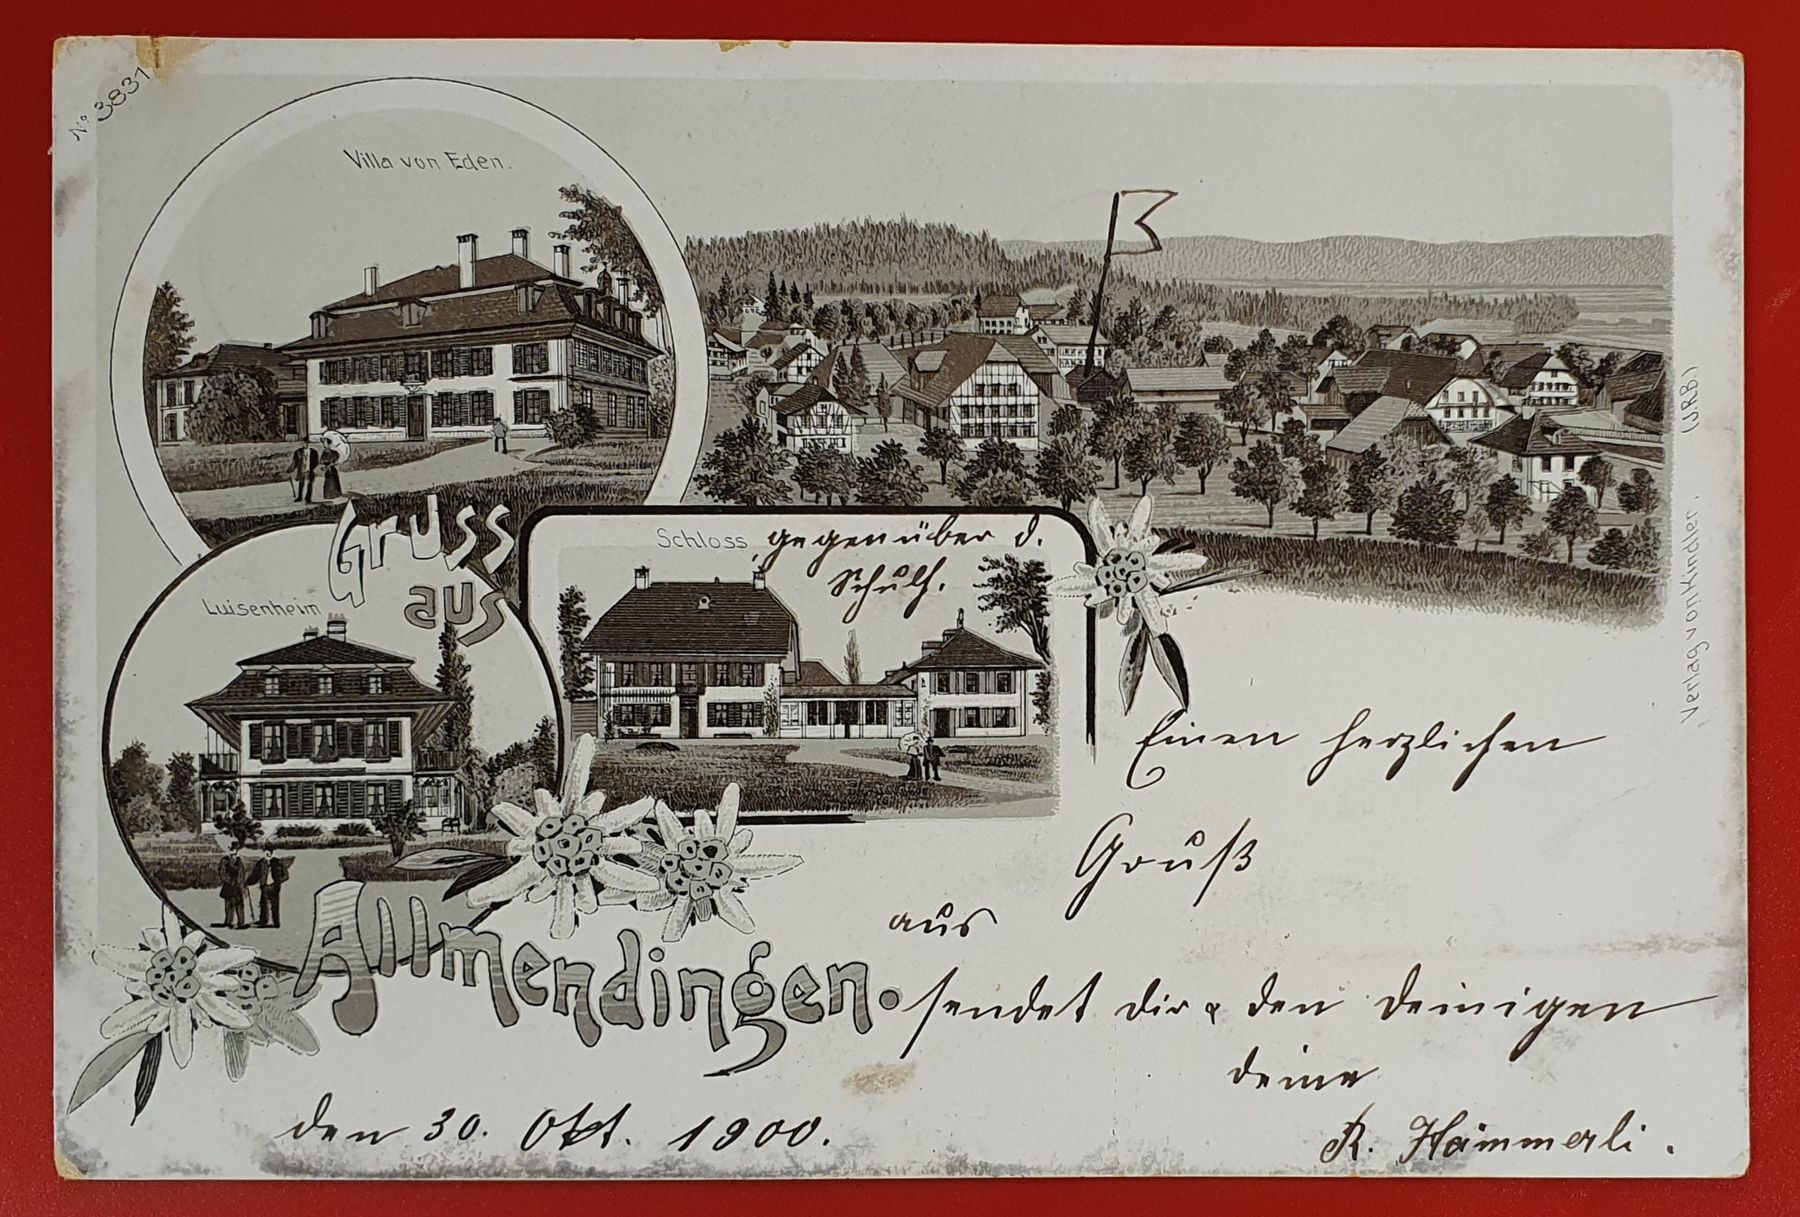 No. 3831
Villa von Eden.
Gruss
aus
Luisenheim
Schloss gegenüber d.
Schulh.
Allmendingen.
Verlag von Kindler. (J.R.B.)
Einen herzlichen
Gruß
aus
sendet dir & den deinigen
deine
R. Hämmerli.
den 30. Okt. 1900.